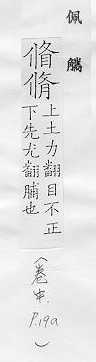 佩觿
脩
上土力翻目不正
下先尤翻脯也
(卷中. P.19a)